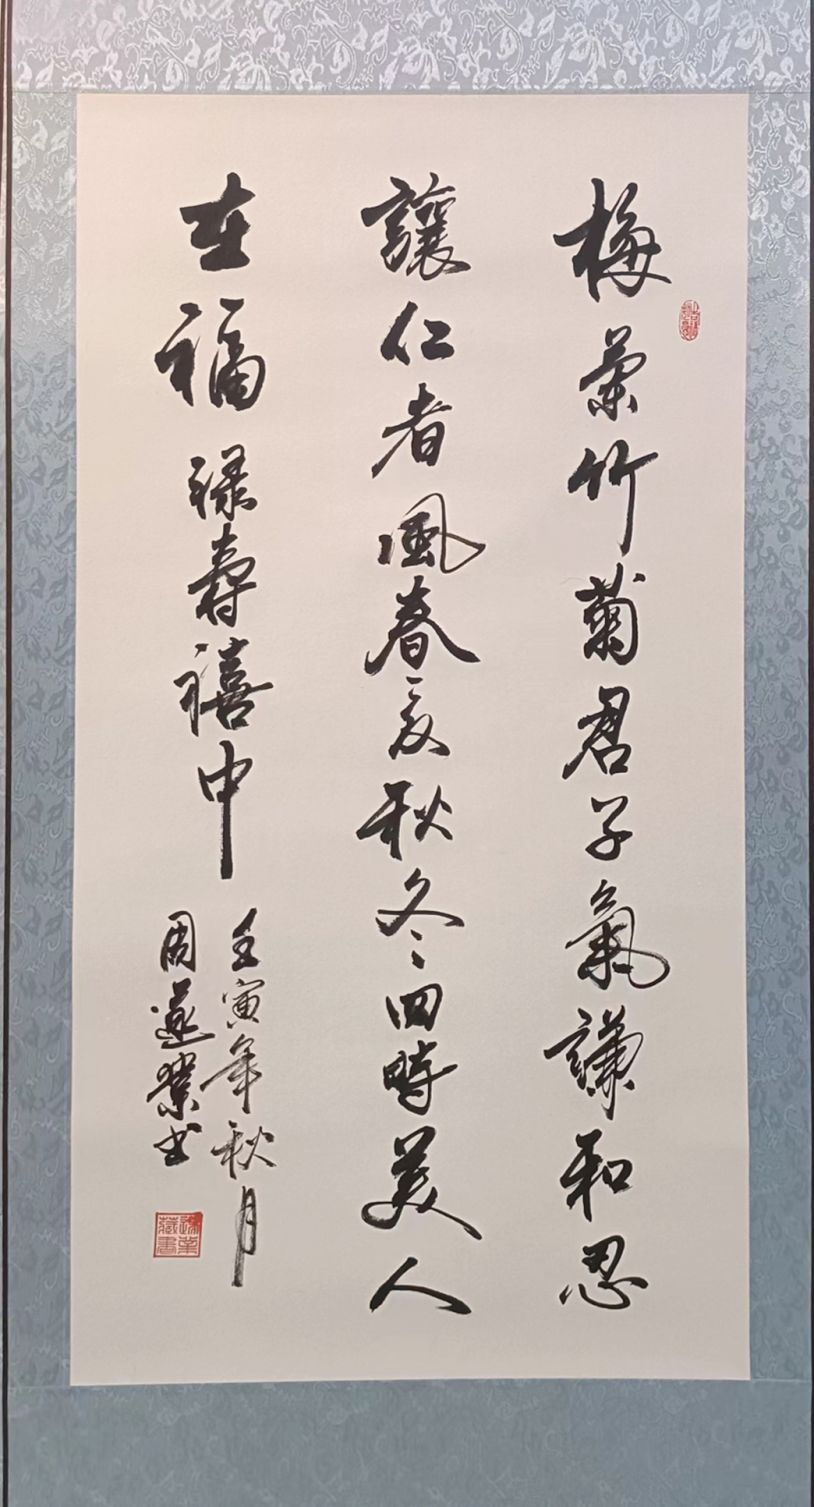 梅蘭竹菊君子氣謙和忍
讓仁者風春夏秋冬四時美人
在福祿壽禧中
壬寅年秋月
周遂業书